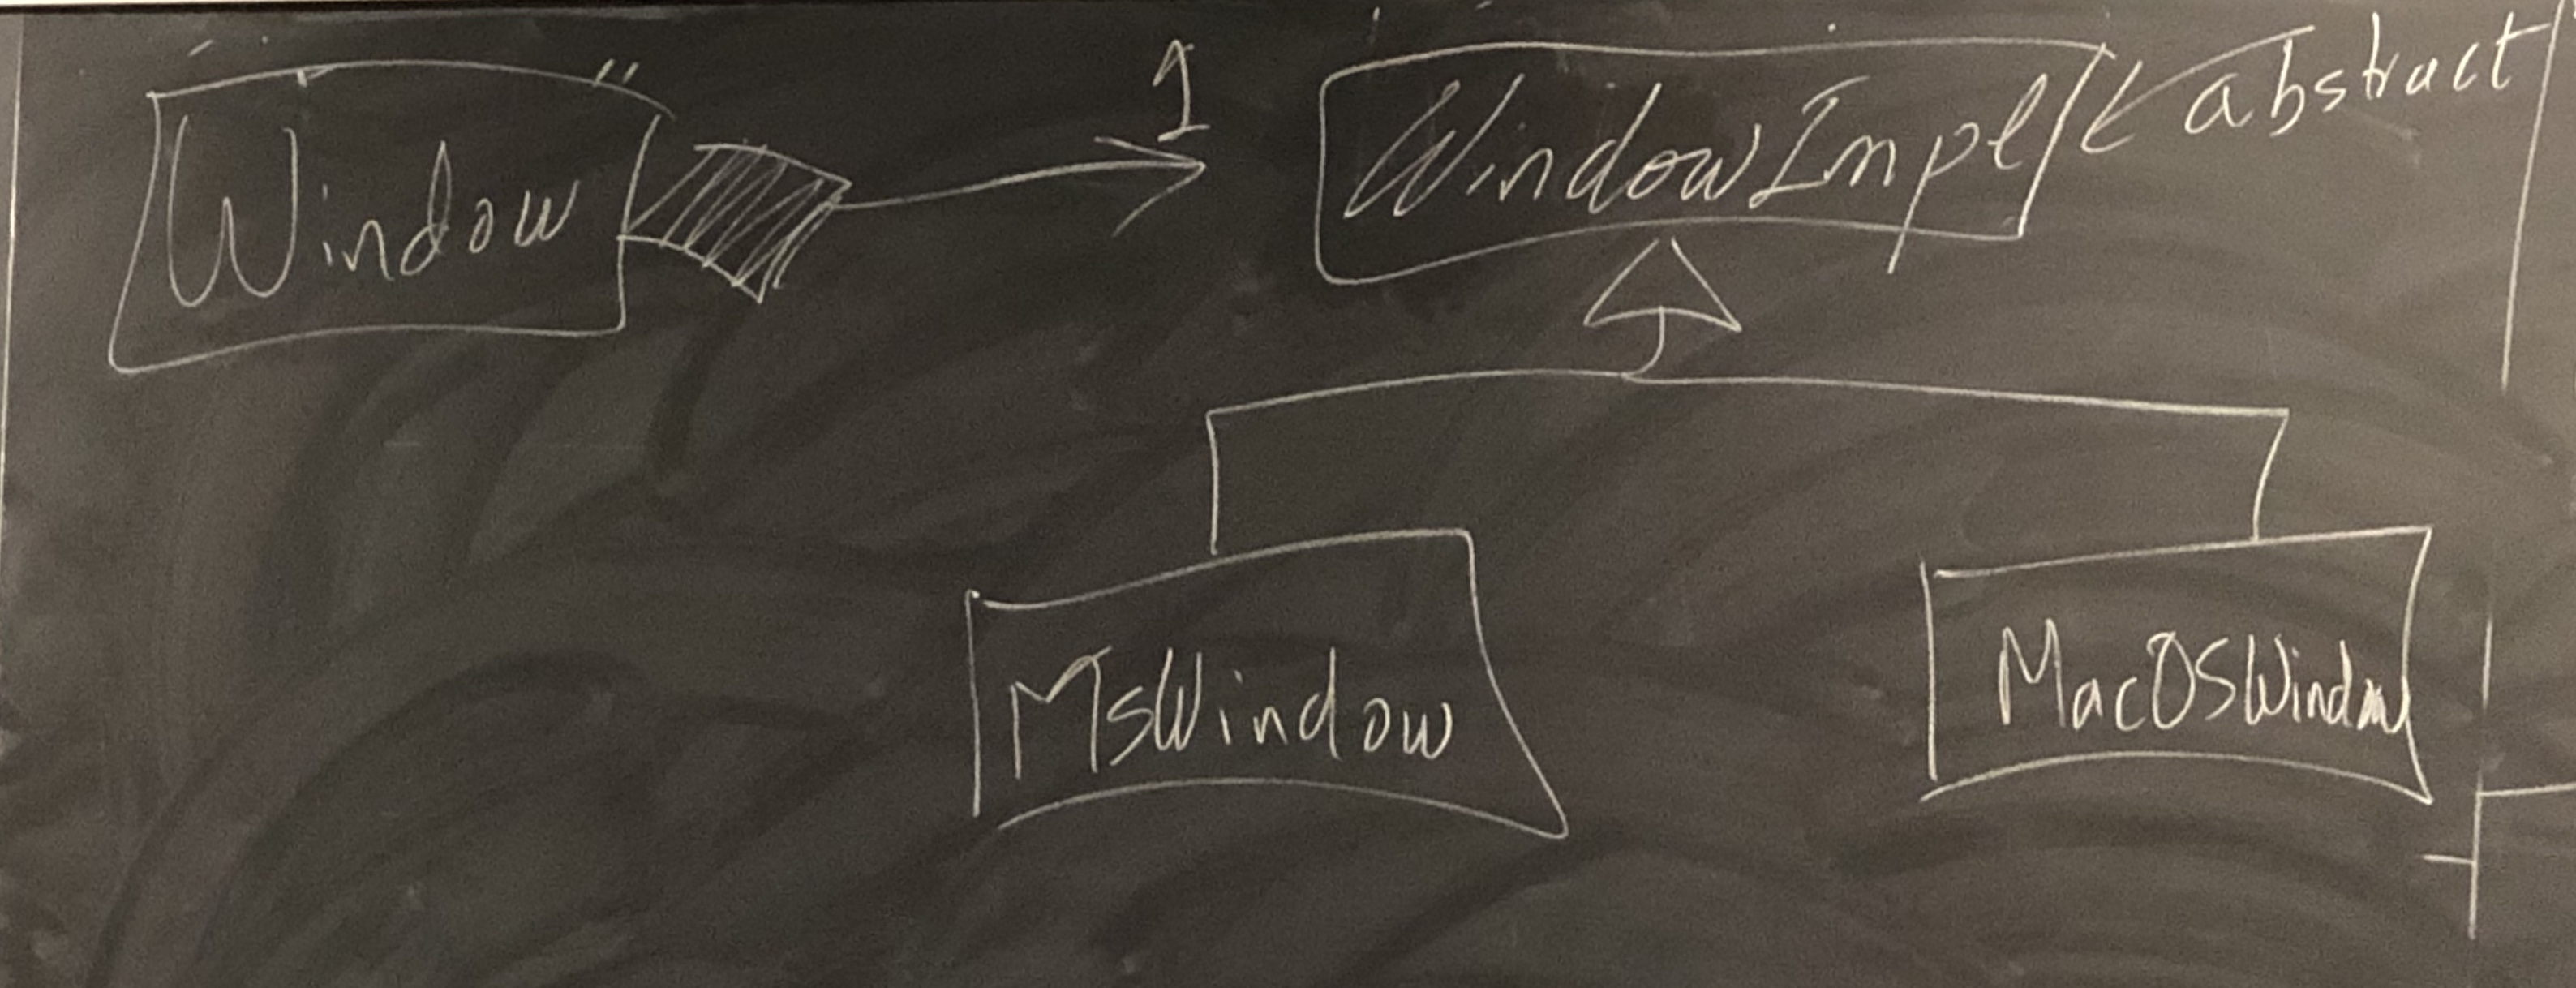 Window
1
WindowImpl
abstract
MsWindow
MacOSWindow